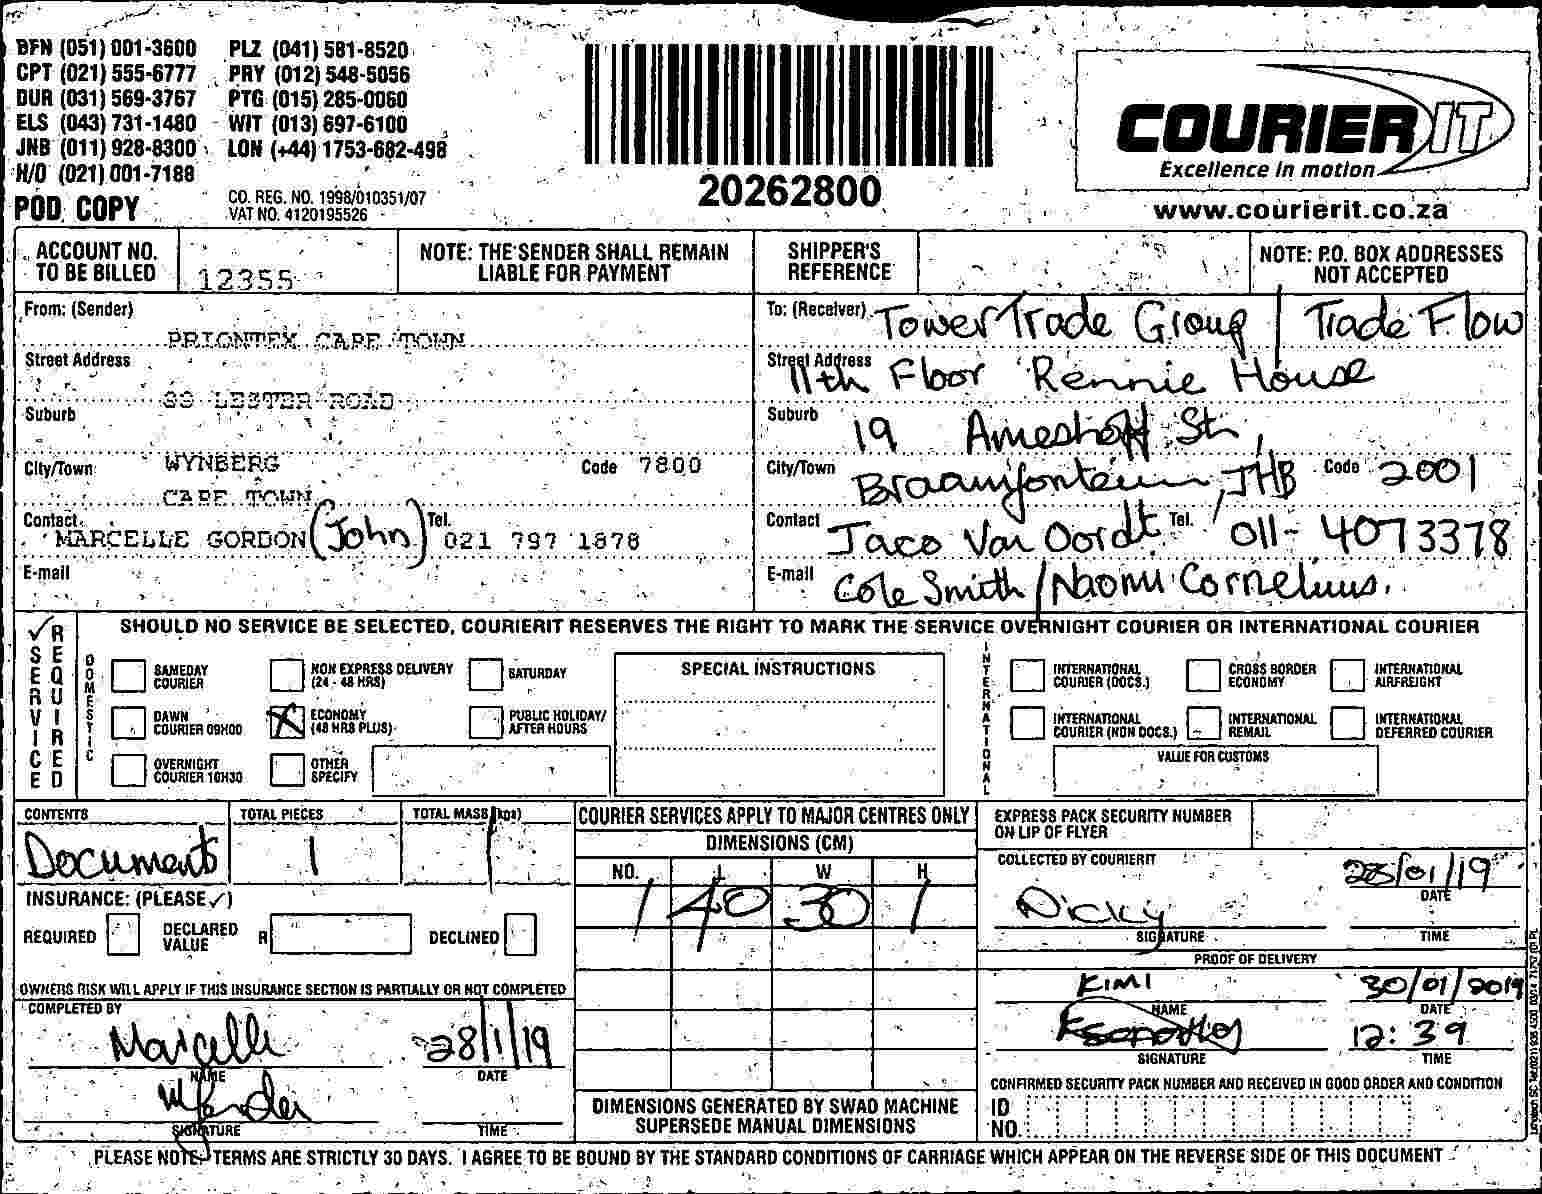 BFN (051) 001-3600 PLZ (041) 581-8520
CPT (021) 555-6777 PRY (012) 548-5056
DUR (031) 569-3767 PTG (015) 285-0060
ELS (043) 731-1480 WIT (013) 697-6100
JNB (011) 928-8300 LON (+44) 1753-682-498
H/O (021) 001-7188
POD COPY
CO. REG. NO. 1998/010351/07
VAT NO. 4120195526
20262800
COURIER IT
Excellence in motion
www.courierit.co.za
ACCOUNT NO. TO BE BILLED 12355
NOTE: THE SENDER SHALL REMAIN LIABLE FOR PAYMENT
SHIPPER'S REFERENCE
NOTE: P.O. BOX ADDRESSES NOT ACCEPTED
From: (Sender)
PRIONTEX CAPE TOWN
Street Address
LESTER ROAD
Suburb
City/Town WYNBERG Code 7800
CAPE TOWN
Contact MARCELLE GORDON (John) Tel. 021 797 1878
E-mail
To: (Receiver) Tower Trade Group / Trade Flow
Street Address 11th Floor Rennie House
Suburb 19 Ameshoff St,
City/Town Braamfontein, JHB Code 2001
Contact Jaco Van Oordt Tel. 011-4073378
E-mail Cole Smith / Naomi Cornelius.
SERVICE REQUIRED
SHOULD NO SERVICE BE SELECTED, COURIERIT RESERVES THE RIGHT TO MARK THE SERVICE OVERNIGHT COURIER OR INTERNATIONAL COURIER
DOMESTIC
SAMEDAY COURIER
NON EXPRESS DELIVERY (24 - 48 HRS)
SATURDAY
DAWN COURIER 09H00
ECONOMY (48 HRS PLUS)
PUBLIC HOLIDAY/ AFTER HOURS
OVERNIGHT COURIER 10H30
OTHER SPECIFY
SPECIAL INSTRUCTIONS
INTERNATIONAL
INTERNATIONAL COURIER (DOCS.)
CROSS BORDER ECONOMY
INTERNATIONAL AIRFREIGHT
INTERNATIONAL COURIER (NON DOCS.)
INTERNATIONAL REMAIL
INTERNATIONAL DEFERRED COURIER
VALUE FOR CUSTOMS
CONTENTS
Documents
TOTAL PIECES
1
TOTAL MASS (kgs)
1
INSURANCE: (PLEASE ✓)
REQUIRED DECLARED VALUE R DECLINED
OWNERS RISK WILL APPLY IF THIS INSURANCE SECTION IS PARTIALLY OR NOT COMPLETED
COMPLETED BY
Marcelle 28/1/19
NAME DATE
SIGNATURE TIME
COURIER SERVICES APPLY TO MAJOR CENTRES ONLY
DIMENSIONS (CM)
NO. L W H
1 40 30 1
DIMENSIONS GENERATED BY SWAD MACHINE SUPERSEDE MANUAL DIMENSIONS
EXPRESS PACK SECURITY NUMBER ON LIP OF FLYER
COLLECTED BY COURIERIT
28/01/19
DATE
Nicky
SIGNATURE TIME
PROOF OF DELIVERY
KIMI 30/01/2019
NAME DATE
12:39
SIGNATURE TIME
CONFIRMED SECURITY PACK NUMBER AND RECEIVED IN GOOD ORDER AND CONDITION
ID NO.
PLEASE NOTE: TERMS ARE STRICTLY 30 DAYS. I AGREE TO BE BOUND BY THE STANDARD CONDITIONS OF CARRIAGE WHICH APPEAR ON THE REVERSE SIDE OF THIS DOCUMENT